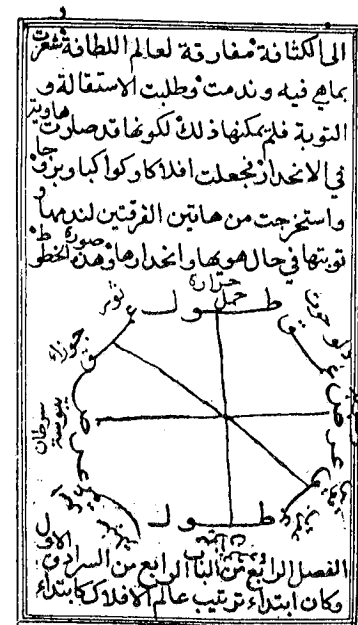 الى الكثافة مفارقة لعالم اللطافة شعرت
بما هي فيه وندمت وطلبت الاستقالة و
التوبة فلم يمكنها ذلك لكونها قد صارت هاوية
في الانحدار فجعلت افلاكا وكواكبا وبروجا
واستخرجت من هاتين الفرقتين لندمها و
توبتها في حال هويها وانحدارها وهذه صورة الخطوط
حرارة
طول حمل
ثور
جوزاء
سرطان
يبوسة
عرض
حوت
دلو
عرض
طول
الفصل الرابع من الباب الرابع من السرادق الاول
وكان ابتداء ترتيب عالم الافلاك كابتداء